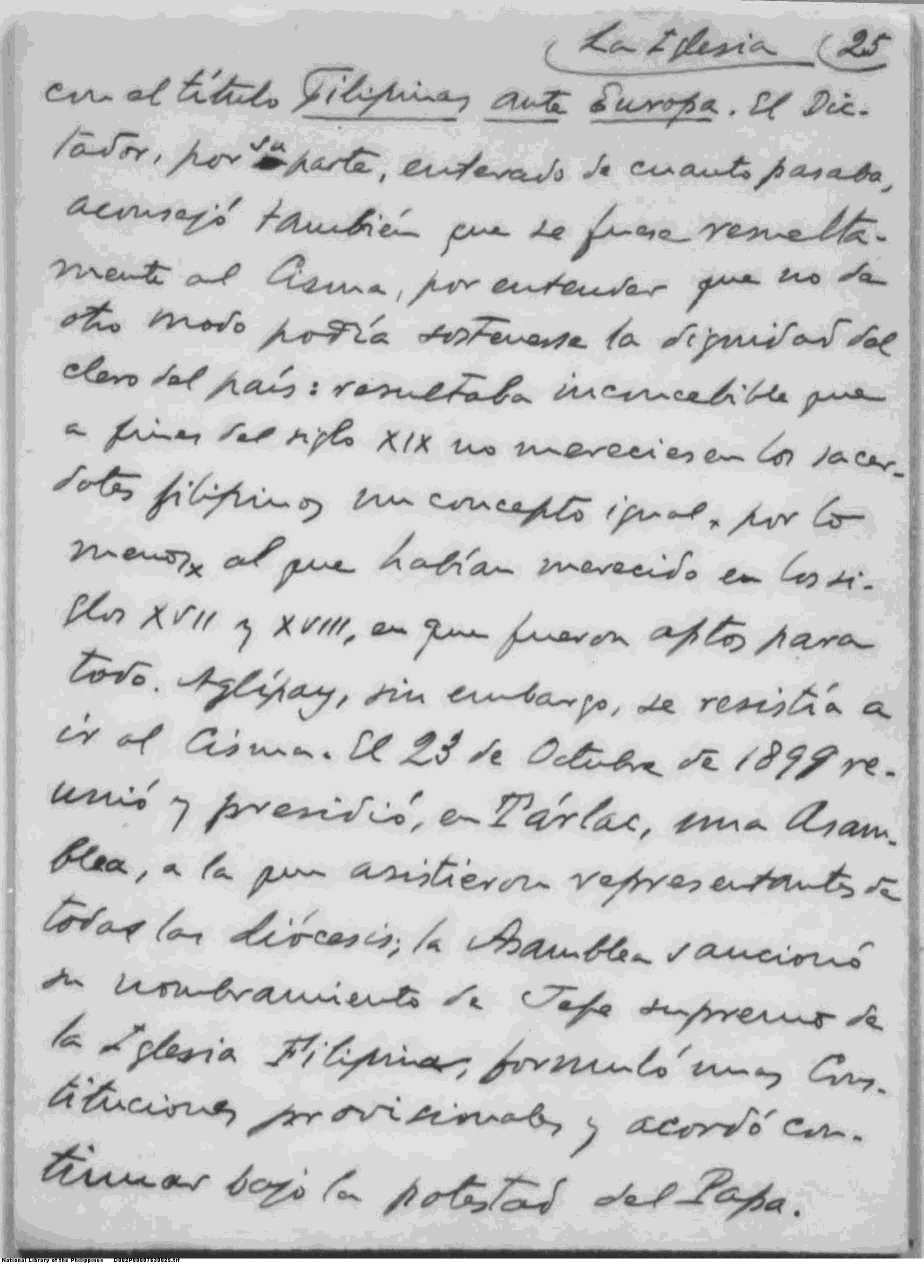 La Iglesia (25
con el título Filipinas ante Europa. El Dic-
tador, por su parte, enterado de cuanto pasaba,
aconsejó también que se fuese resuelta-
mente al Cisma, por entender que no de
otro modo podía sostenerse la dignidad del
clero del país: resultaba inconcebible que
a fines del siglo XIX no mereciesen los sacer-
dotes filipinos un concepto igual, por lo
menos, al que habían merecido en los si-
glos XVII y XVIII, en que fueron aptos para
todo. Aglípay, sin embargo, se resistía a
ir al Cisma. El 23 de Octubre de 1899 re-
unió y presidió, en Tárlac, una Asam-
blea, a la que asistieron representantes de
todas las diócesis; la Asamblea sancionó
su nombramiento de Jefe supremo de
la Iglesia Filipina, formuló unas Cons-
tituciones provisionales y acordó con-
tinuar bajo la potestad del Papa.
National Library of the Philippines